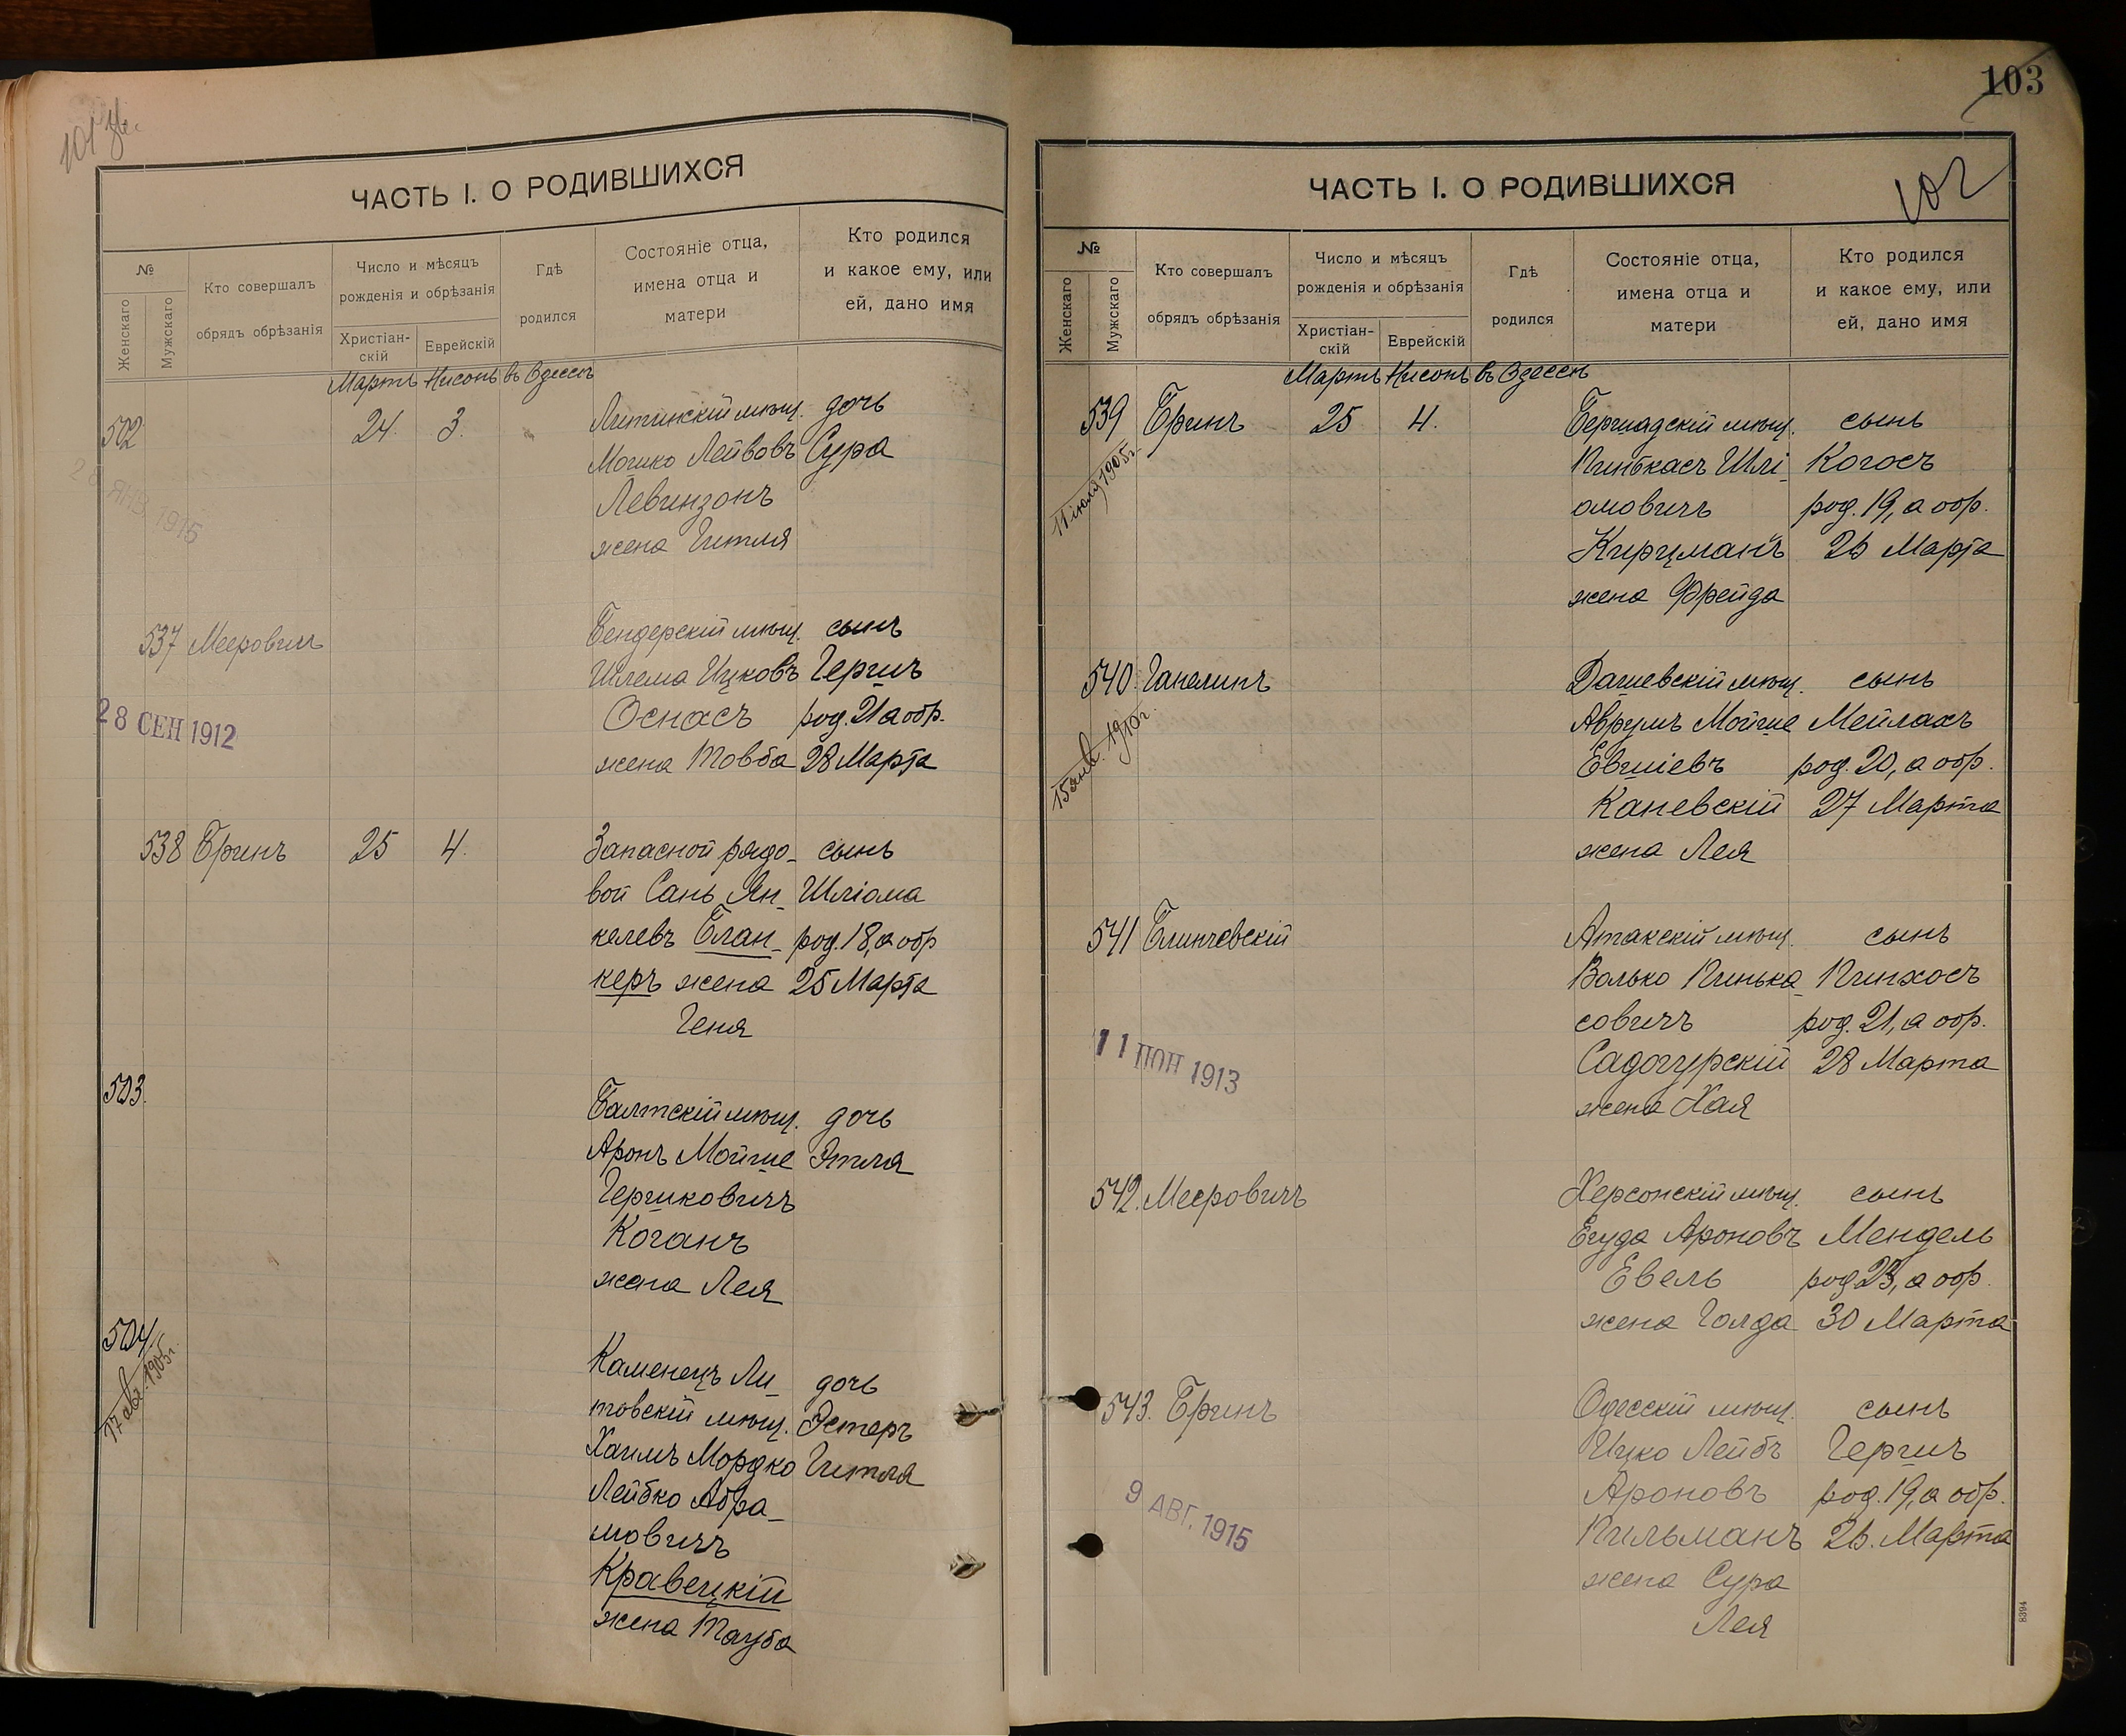 101 зв.
ЧАСТЬ I. О РОДИВШИХСЯ
№
Женскаго
Мужскаго
Кто совершалъ
обрядъ обрѣзанія
Число и мѣсяцъ
рожденія и обрѣзанія
Христіан-
скій
Еврейскій
Гдѣ
родился
Состояніе отца,
имена отца и
матери
Кто родился
и какое ему, или
ей, дано имя
Мартъ Нисонъ въ Одессѣ
502 24. 3. Литинскій мѣщ. дочь
Мошко Лейбовъ Сура
Левинзонъ
жена Гитля
28 ЯНВ 1915
537 Мееровичъ Бендерскій мѣщ. сынъ
Шлема Ицковъ Гершъ
Оснасъ род. 21 а обр.
жена Товба 28 Марта
28 СЕН 1912
538 Бринъ 25 4. Запасной рядо- сынъ
вой Сань Ян- Шліома
келевъ Блан- род. 18, а обр
керъ жена 25 Марта
Геня
503. Балтскій мѣщ. дочь
Аронъ Мойше Этля
Гершковичъ
Коганъ
жена Лея
504. Каменецъ Ли- дочь
товскій мѣщ. Эстеръ
Хаимъ Мордко Гитля
Лейбко Абра-
мовичъ
Кравецкій
жена Тауба
17 авг. 1905г.
103
102
ЧАСТЬ I. О РОДИВШИХСЯ
№
Женскаго
Мужскаго
Кто совершалъ
обрядъ обрѣзанія
Число и мѣсяцъ
рожденія и обрѣзанія
Христіан-
скій
Еврейскій
Гдѣ
родился
Состояніе отца,
имена отца и
матери
Кто родился
и какое ему, или
ей, дано имя
Мартъ Нисонъ въ Одессѣ
539 Бринъ 25 4. Бершадскій мѣщ. сынъ
Пинкасъ Шлі- Когосъ
омовичъ род. 19, а обр.
Кирцманъ 26 Марта
жена Фрейда
11 іюля 1905г.
540. Ганелинъ Дашевскій мѣщ. сынъ
Аврумъ Мойше Мейлахъ
Евшіевъ род. 20, а обр.
Каневскій 27 Марта
жена Лея
15 янв. 1910г.
541 Блинчевскій Атакскій мѣщ. сынъ
Волько Пинька- Пинхосъ
совичъ род. 21, а обр.
Садогурскій 28 Марта
жена Хая
11 ІЮН 1913
542. Мееровичъ Херсонскій мѣщ. сынъ
Егуда Ароновъ Мендель
Евель род. 23, а обр.
жена Голда 30 Марта
543. Бринъ Одесскій мѣщ. сынъ
Ицко Лейбъ Гершъ
Ароновъ род. 19, а обр.
Пильманъ 26. Марта
жена Сура
Лея
9 АВГ. 1915
8394